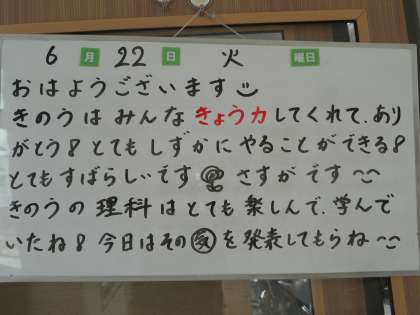 6月22日 火 曜日
おはようございます
きのうは みんな きょうカしてくれて、あり
がとう！とてもしずかに やることができる！
とてもすばらしいです さすがです
きのうの 理科は とても 楽しんで、学んで
いたね！今日はその を発表してもらね